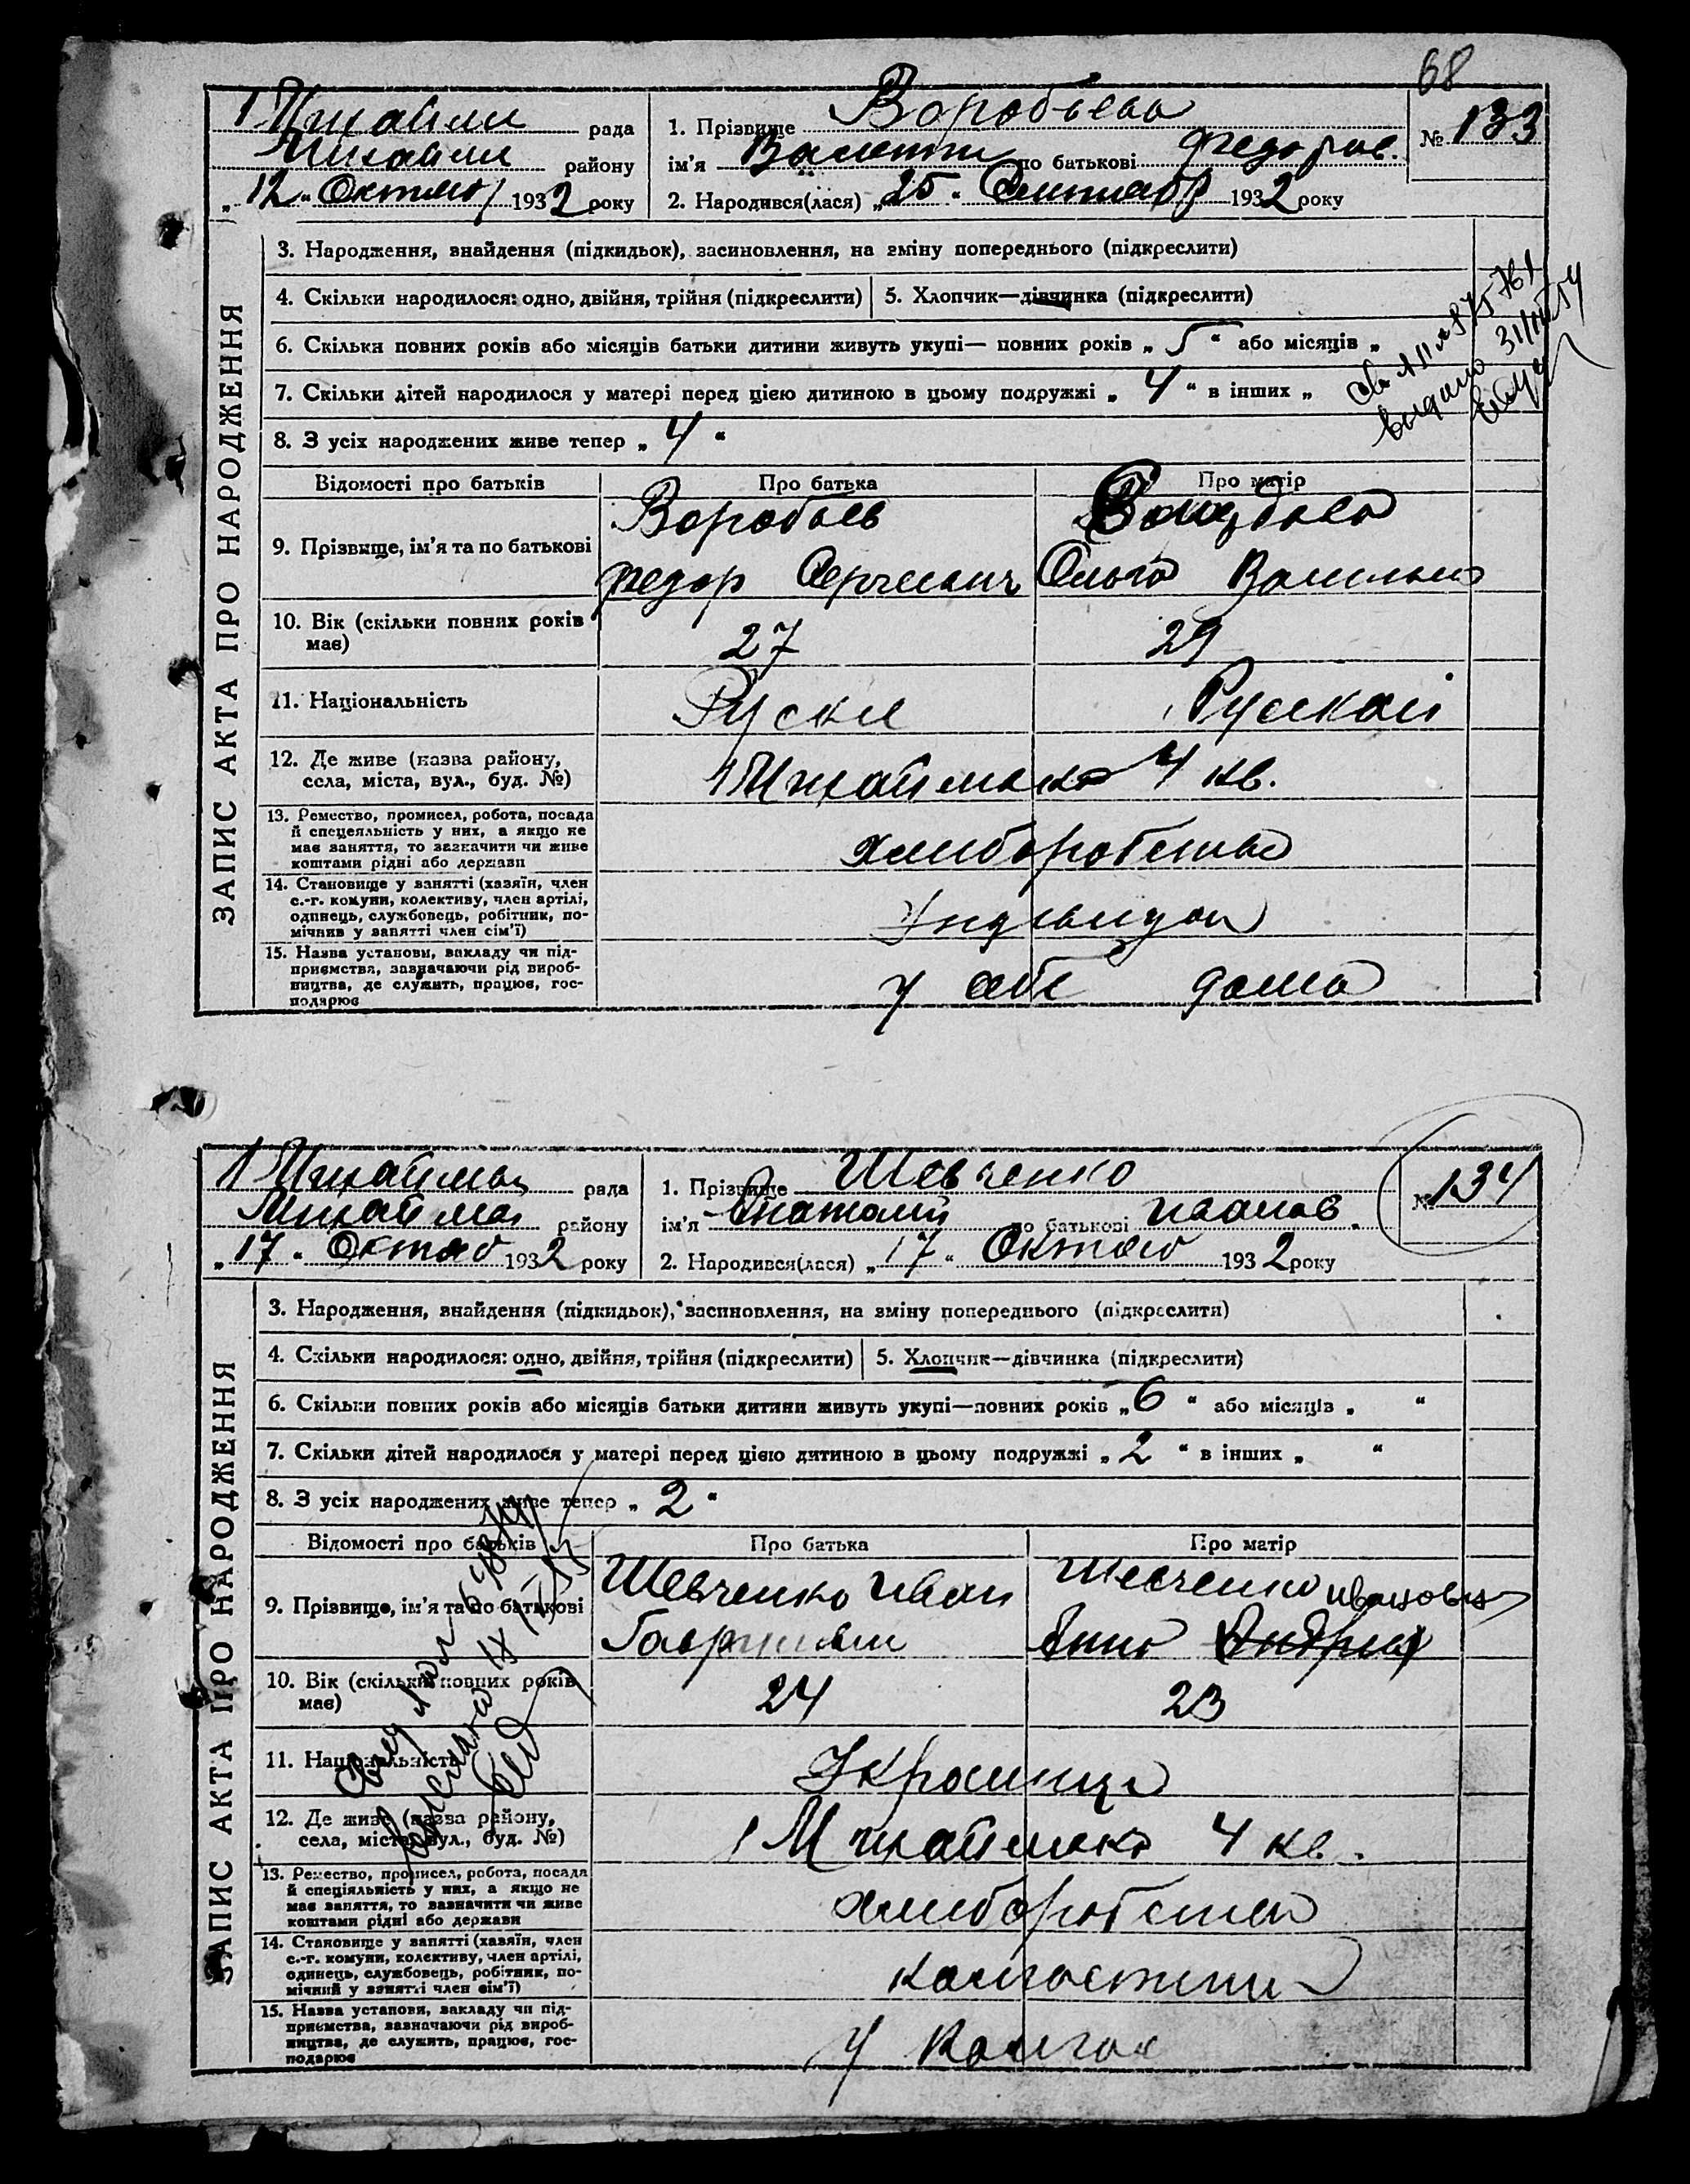 68
рада
району
"12" Октяб 1932 року
1. Прізвище Воробьева
ім'я Валенти по батькові Федоров.
2. Народився(лася) "25" Сентябр 1932 року
№ 133
ЗАПИС АКТА ПРО НАРОДЖЕННЯ
3. Народження, знайдення (підкидьок), засиновлення, на зміну попереднього (підкреслити)
4. Скільки народилося: одно, двійня, трійня (підкреслити)
5. Хлопчик—дівчинка (підкреслити)
6. Скільки повних років або місяців батьки дитини живуть укупі— повних років „ 5 “ або місяців „
7. Скільки дітей народилося у матері перед цією дитиною в цьому подружжі „ 4 “ в інших „
8. З усіх народжених живе тепер „ 4 “
выдано
Відомості про батьків
Про батька
Про матір
9. Прізвище, ім'я та по батькові
Воробьев
Федор Сергеевич
Ольга Василье
10. Вік (скільки повних років має)
27
29
11. Національність
Руски
Руской
12. Де живе (назва району,
села, міста, вул., буд. №)
4 кв.
13. Ремество, промисел, робота, посада
й спецеяльність у них, а якщо не
має заняття, то зазначити чи живе
коштами рідні або держави
хлиборобство
14. Становище у занятті (хазяїн, член
с.-г. комуни, колективу, член артілі,
одинець, службовець, робітник, по-
мічник у занятті член сім'ї)
15. Назва установи, закладу чи під-
приємства, зазначаючи рід вироб-
ництва, де служить, працює, гос-
подарює
у себе дома
рада
району
"17" Октяб 1932 року
1. Прізвище Шевченко
ім'я Анатолий по батькові Иванов.
2. Народився(лася) "17" Октяб 1932 року
№ 134
ЗАПИС АКТА ПРО НАРОДЖЕННЯ
3. Народження, знайдення (підкидьок), засиновлення, на зміну попереднього (підкреслити)
4. Скільки народилося: одно, двійня, трійня (підкреслити)
5. Хлопчик—дівчинка (підкреслити)
6. Скільки повних років або місяців батьки дитини живуть укупі—повних років „ 6 “ або місяців „ “
7. Скільки дітей народилося у матері перед цією дитиною в цьому подружжі „ 2 “ в інших „ “
8. З усіх народжених живе тепер „ 2 “
Відомості про батьків
Про батька
Про матір
9. Прізвище, ім'я та по батькові
Шевченко Иван
Шевченко
Анна
10. Вік (скільки повних років має)
24
23
11. Національність
Украинци
12. Де живе (назва району,
села, міста, вул., буд. №)
4 кв.
13. Ремество, промисел, робота, посада
й спеціяльність у них, а якщо не
має заняття, то зазначити чи живе
коштами рідні або держави
хлиборобство
14. Становище у занятті (хазяїн, член
с.-г. комуни, колективу, член артілі,
одинець, службовець, робітник, по-
мічний у занятті член сім'ї)
15. Назва установи, закладу чи під-
приємства, зазначаючи рід вироб-
ництва, де служить, працює, гос-
подарює
у колгос